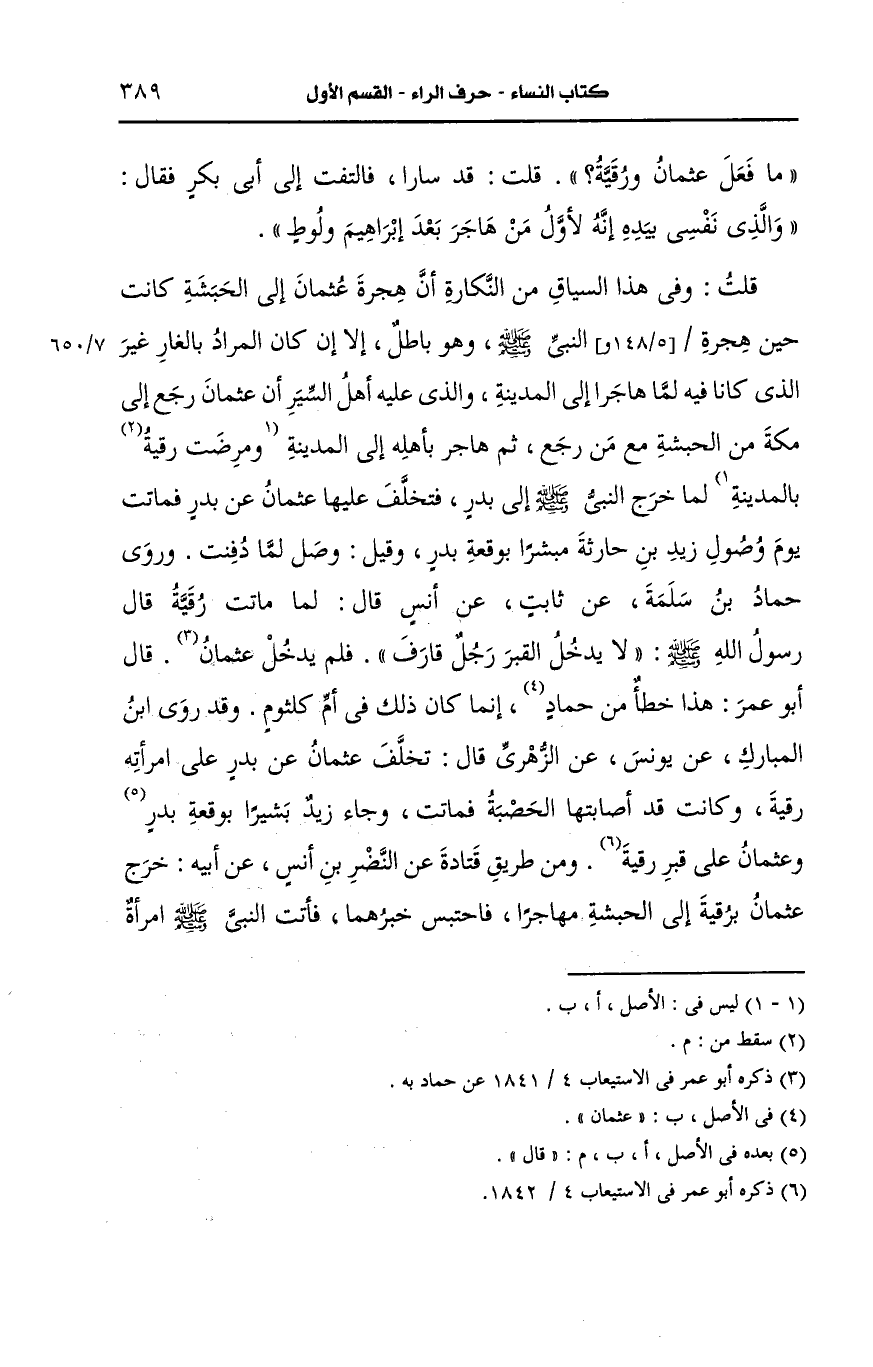 كتاب النساء - حرف الراء - القسم الأول ٣٨٩
« ما فَعَلَ عثمانُ ورُقَيَّةُ؟ » . قلت : قد سارا ، فالتفت إلى أبى بكرٍ فقال :
« وَالَّذِى نَفْسِى بيَدِهِ إنَّهُ لأوَّلُ مَنْ هَاجَرَ بَعْدَ إبْرَاهِيمَ ولُوطٍ » .
قلتُ : وفى هذا السياقِ من النَّكارةِ أنَّ هِجرةَ عُثمانَ إلى الحَبَشَةِ كانت
حين هِجرةِ / [١٤٨/٥و] النبىِّ ﷺ ، وهو باطلٌ ، إلا إن كان المرادُ بالغارِ غيرَ ٦٥٠/٧
الذى كانا فيه لمَّا هاجَرا إلى المدينةِ ، والذى عليه أهلُ السِّيَرِ أن عثمانَ رجَع إلى
مكةَ من الحبشةِ مع مَن رجَع ، ثم هاجر بأهلِه إلى المدينةِ (١ومرِضَت رقيةُ(٢)
بالمدينةِ١) لما خرَج النبىُّ ﷺ إلى بدرٍ ، فتخلَّفَ عليها عثمانُ عن بدرٍ فماتت
يومَ وُصُولِ زيدِ بنِ حارثةَ مبشرًا بوقعةِ بدرٍ ، وقيل : وصَل لمَّا دُفِنت . وروَى
حمادُ بنُ سَلَمَةَ ، عن ثابتٍ ، عن أنسٍ قال : لما ماتت رُقَيَّةُ قال
رسولُ اللهِ ﷺ : « لا يدخُلُ القبرَ رَجُلٌ قارَفَ » . فلم يدخُلْ عثمانُ(٣) . قال
أبو عمرَ : هذا خطأٌ من حمادٍ(٤) ، إنما كان ذلك فى أمِّ كلثومٍ . وقد روَى ابنُ
المباركِ ، عن يونسَ ، عن الزُّهْرىِّ قال : تخلَّفَ عثمانُ عن بدرٍ على امرأتِه
رقيةَ ، وكانت قد أصابتها الحَصْبَةُ فماتت ، وجاء زيدٌ بَشيرًا بوقعةِ بدرٍ(٥)
وعثمانُ على قبرِ رقيةَ(٦) . ومن طريقِ قَتادةَ عن النَّضْرِ بنِ أنسٍ ، عن أبيه : خرَج
عثمانُ برُقيةَ إلى الحبشةِ مهاجرًا ، فاحتبس خبرُهما ، فأتت النبىَّ ﷺ امرأةٌ
(١ - ١) ليس فى : الأصل ، أ ، ب .
(٢) سقط من : م .
(٣) ذكره أبو عمر فى الاستيعاب ٤ / ١٨٤١ عن حماد به .
(٤) فى الأصل ، ب : « عثمان » .
(٥) بعده فى الأصل ، أ ، ب ، م : « قال » .
(٦) ذكره أبو عمر فى الاستيعاب ٤ / ١٨٤٢.